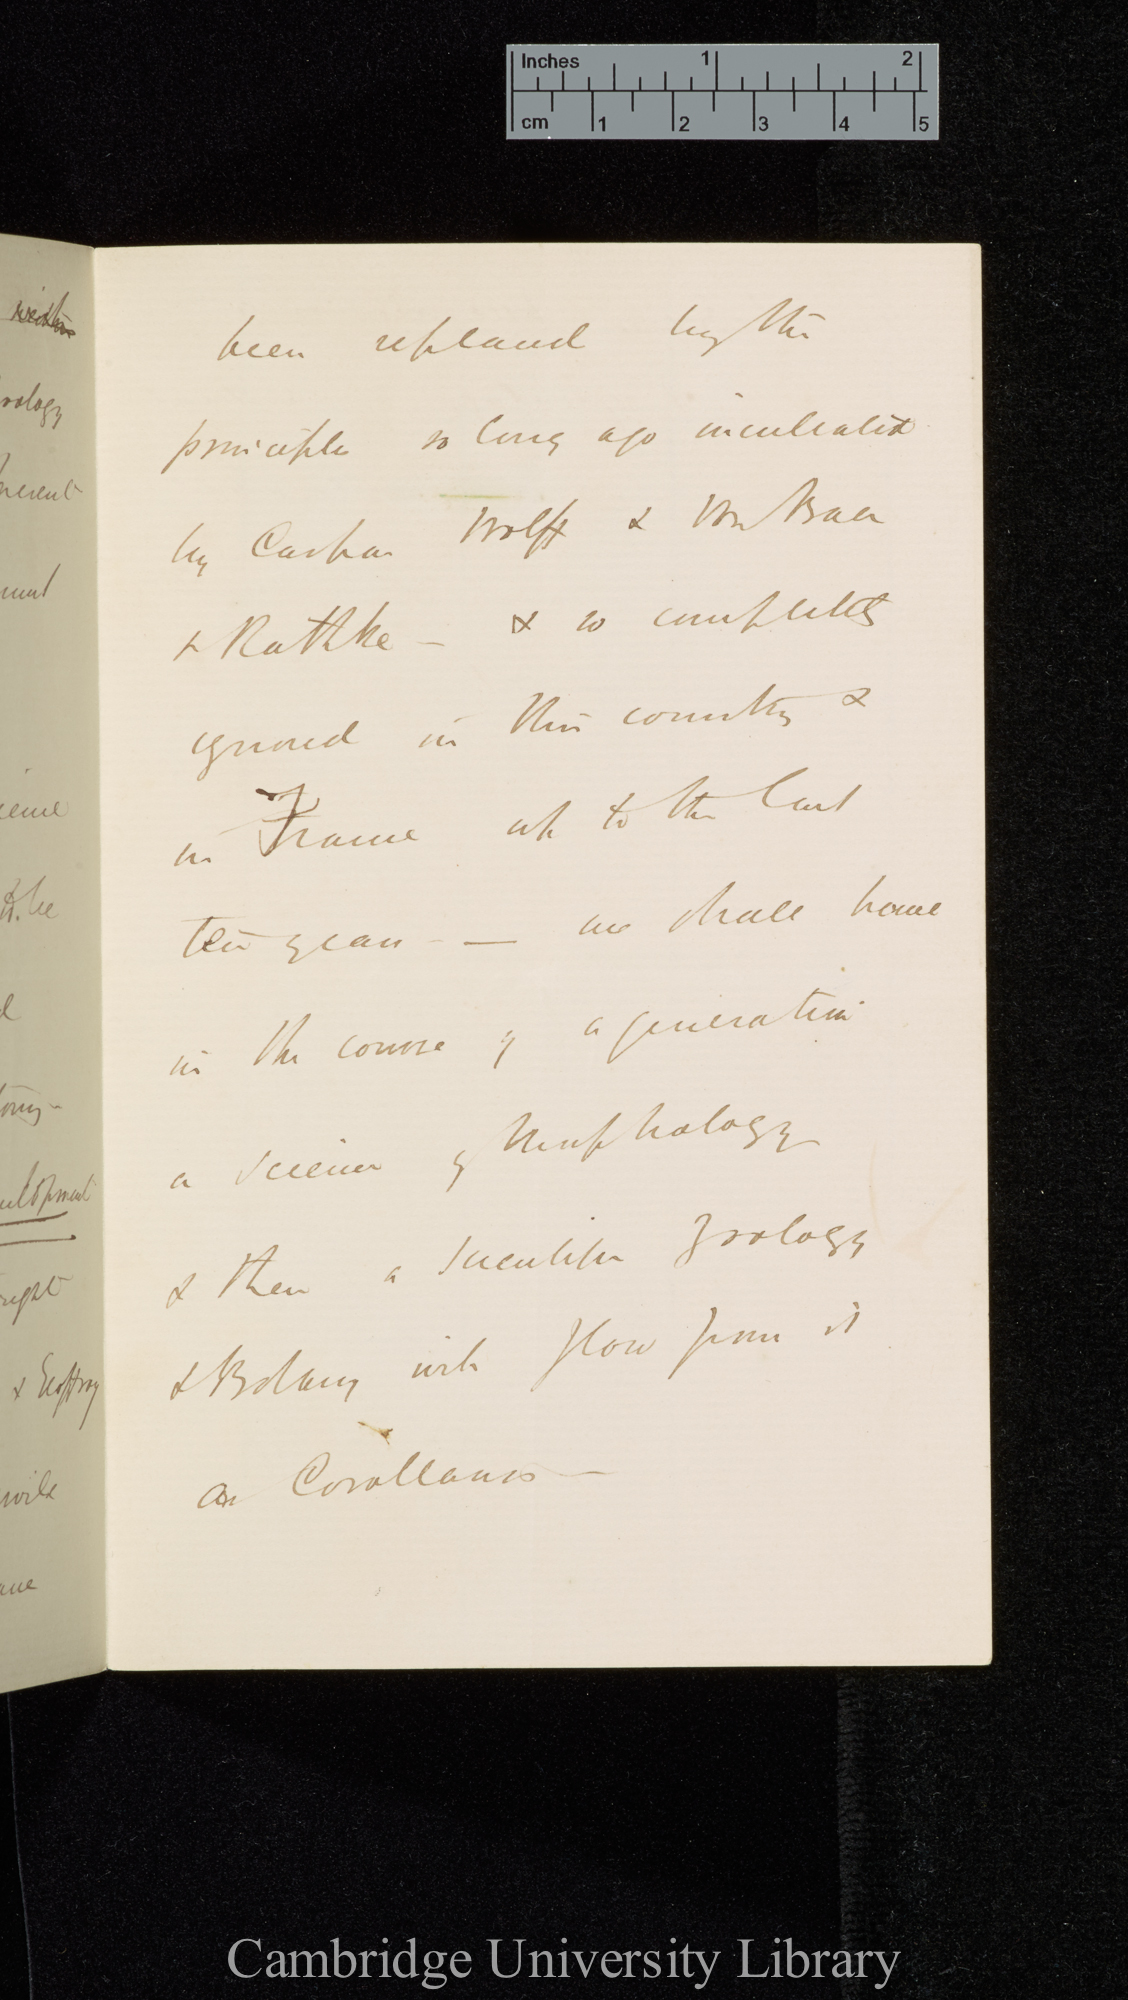 Inches 1 2
cm 1 2 3 4 5
been replaced by the
principles so long ago inculcated
by Caspar Wolff & Von Baer
& Rathke – & so completely
ignored in this country &
in France up to the last
ten years – — we shall have
in the course of a generation
a science of Morphology
& then a Scientific Zoology
& Botany will flow from it
as Corollaries —
ology
present
& he
velopment
& Geoffroy
will
Cambridge University Library